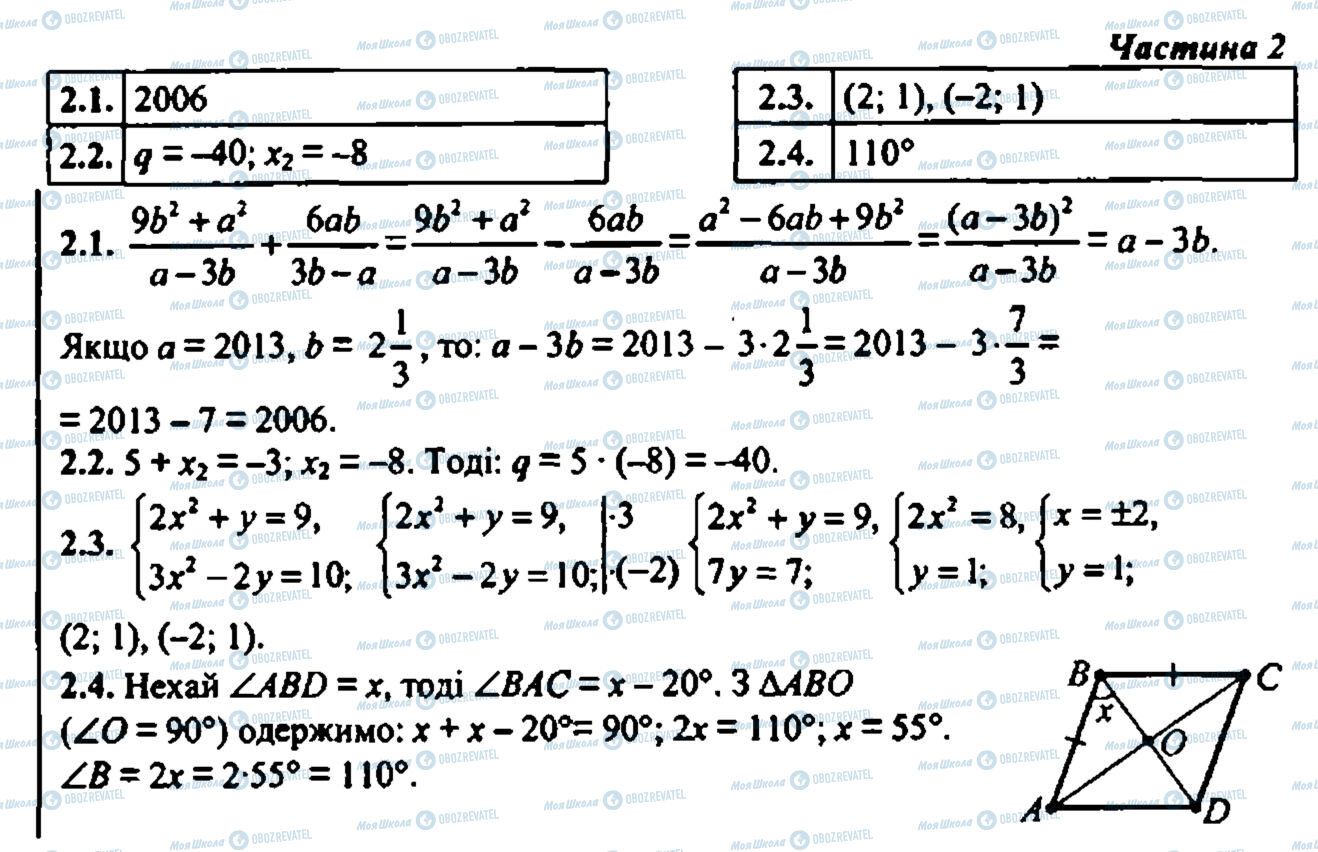 Частина 2
2.1. 2006
2.2. q = –40; x₂ = –8
2.3. (2; 1), (–2; 1)
2.4. 110°
2.1. (9b² + a²)/(a – 3b) + 6ab/(3b – a) = (9b² + a²)/(a – 3b) – 6ab/(a – 3b) = (a² – 6ab + 9b²)/(a – 3b) = (a – 3b)²/(a – 3b) = a – 3b.
Якщо a = 2013, b = 2 1/3, то: a – 3b = 2013 – 3·2 1/3 = 2013 – 3·7/3 =
= 2013 – 7 = 2006.
2.2. 5 + x₂ = –3; x₂ = –8. Тоді: q = 5 · (–8) = –40.
2.3. {2x² + y = 9, 3x² – 2y = 10; {2x² + y = 9, |·3 3x² – 2y = 10; |·(–2) {2x² + y = 9, 7y = 7; {2x² = 8, y = 1; {x = ±2, y = 1;
(2; 1), (–2; 1).
2.4. Нехай ∠ABD = x, тоді ∠BAC = x – 20°. З ΔABO
(∠O = 90°) одержимо: x + x – 20°= 90°; 2x = 110°; x = 55°.
∠B = 2x = 2·55° = 110°.
B C
x
O
A D
МояШкола OBOZREVATEL